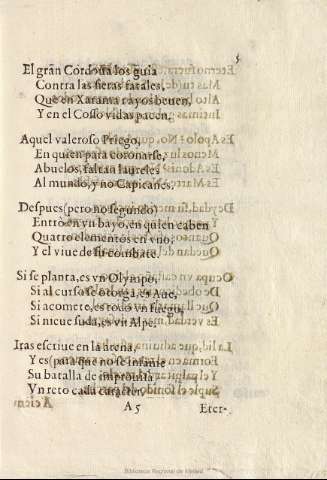 5
El gran Cordoua los guia
Contra las fieras fatales,
Que en Xarama rayos beuen,
Y en el Cosso vidas pacen.
Aquel valeroso Priego,
En quien para coronarse,
Abuelos, faltan laureles
Al mundo, y no Capitanes.
Despues (pero no segundo)
Entrò en vn bayo, en quien caben
Quatro elementos en vno,
Y el viue de su combate.
Si se planta, es vn Olympo,
Si al curso se otorga, es Aue,
Si acomete, es todo vn fuego,
Si nieue suda, es vn Alpe.
Iras escriue en la arena,
Y es (para que no se infame
Su batalla de improuisa)
Vn reto cada caracter.
A 5
Eter-
Biblioteca Regional de Madrid